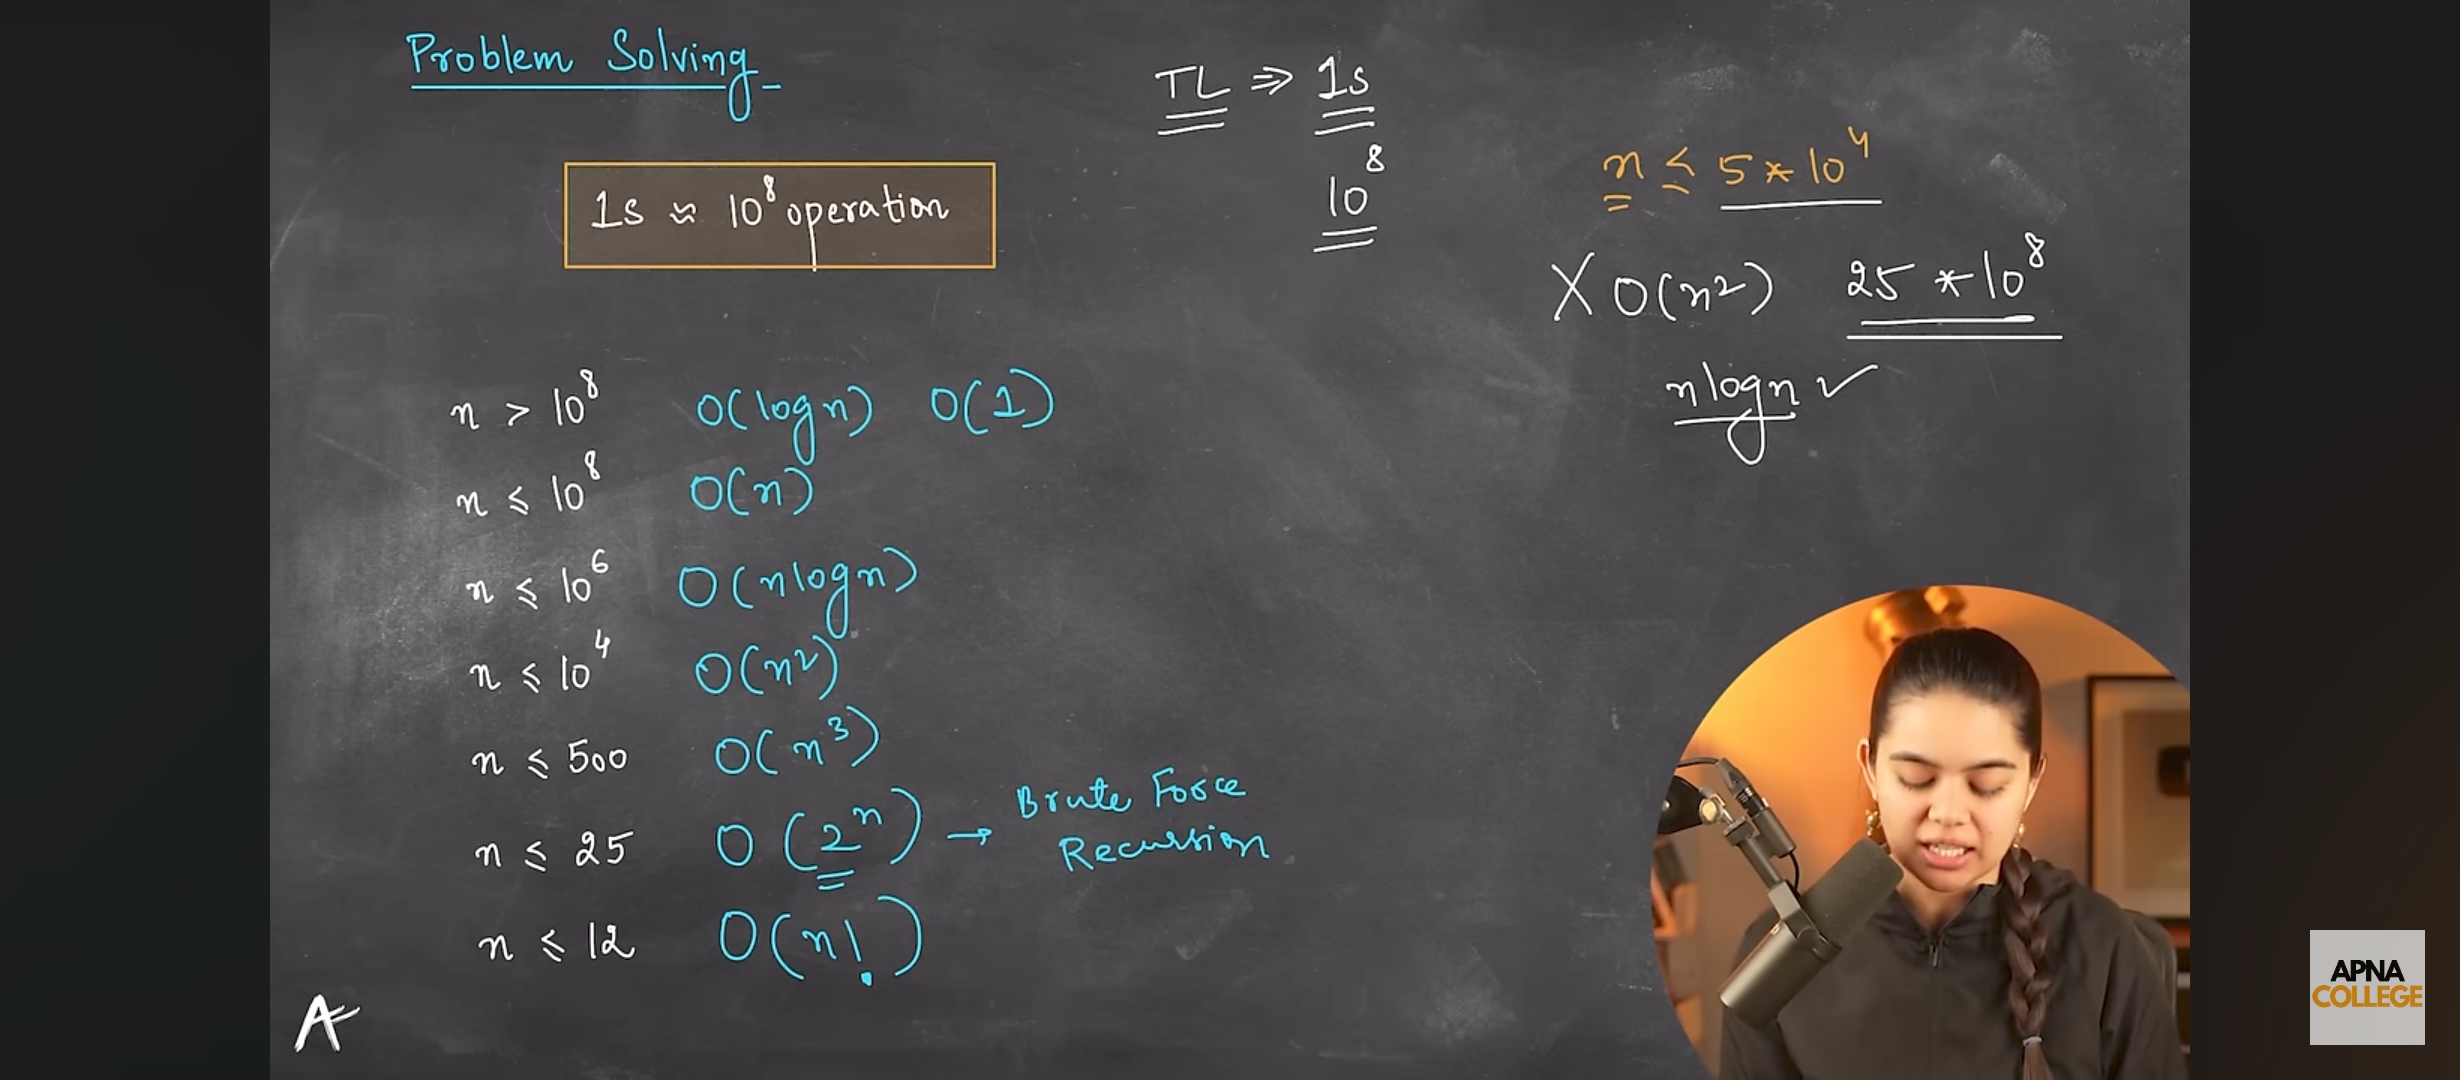 Problem Solving
1s ≈ 10⁸ operation
TL ⇒ 1s
10⁸
n ≤ 5 * 10⁴
X O(n²) 25 * 10⁸
nlogn ✓
n > 10⁸ O(logn) O(1)
n ≤ 10⁸ O(n)
n ≤ 10⁶ O(nlogn)
n ≤ 10⁴ O(n²)
n ≤ 500 O(n³)
n ≤ 25 O(2ⁿ) → Brute Force
Recursion
n ≤ 12 O(n!)
A
APNA
COLLEGE